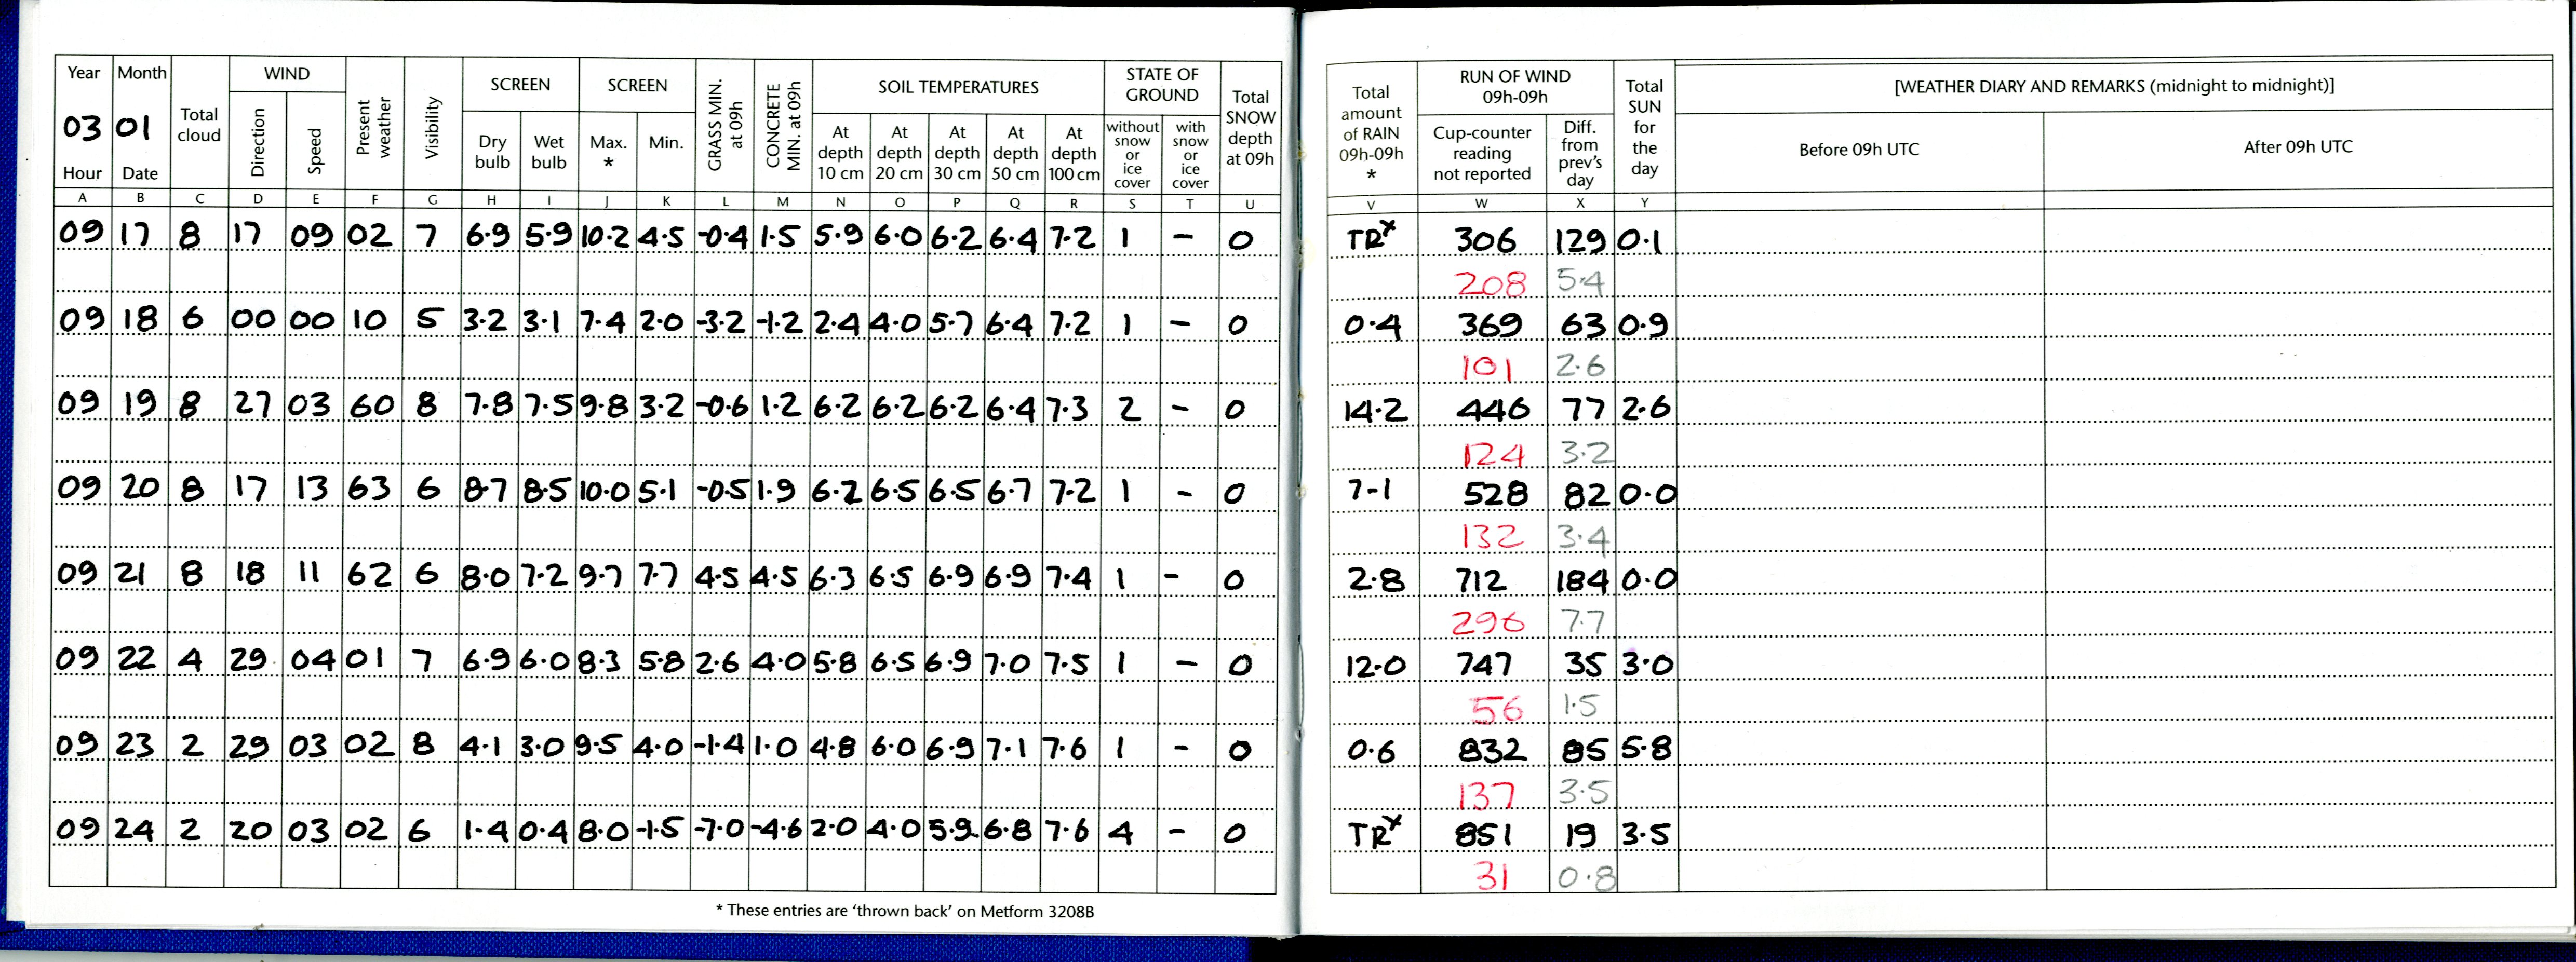 Year Month Total cloud WIND Present weather Visibility SCREEN SCREEN GRASS MIN. at 09h CONCRETE MIN. at 09h SOIL TEMPERATURES STATE OF GROUND Total SNOW depth at 09h Total amount of RAIN 09h-09h * RUN OF WIND 09h-09h Total SUN for the day [WEATHER DIARY AND REMARKS (midnight to midnight)]
03 01 Direction Speed Dry bulb Wet bulb Max. * Min. At depth 10 cm At depth 20 cm At depth 30 cm At depth 50 cm At depth 100 cm without snow or ice cover with snow or ice cover Cup-counter reading not reported Diff. from prev's day Before 09h UTC After 09h UTC
Hour Date
A B C D E F G H I J K L M N O P Q R S T U V W X Y
09 17 8 17 09 02 7 6.9 5.9 10.2 4.5 -0.4 1.5 5.9 6.0 6.2 6.4 7.2 1 - 0 TRx 306 129 0.1
208 5.4
09 18 6 00 00 10 5 3.2 3.1 7.4 2.0 -3.2 -1.2 2.4 4.0 5.7 6.4 7.2 1 - 0 0.4 369 63 0.9
101 2.6
09 19 8 27 03 60 8 7.8 7.5 9.8 3.2 -0.6 1.2 6.2 6.2 6.2 6.4 7.3 2 - 0 14.2 446 77 2.6
124 3.2
09 20 8 17 13 63 6 8.7 8.5 10.0 5.1 -0.5 1.9 6.2 6.5 6.5 6.7 7.2 1 - 0 7.1 528 82 0.0
132 3.4
09 21 8 18 11 62 6 8.0 7.2 9.7 7.7 4.5 4.5 6.3 6.5 6.9 6.9 7.4 1 - 0 2.8 712 184 0.0
296 7.7
09 22 4 29 04 01 7 6.9 6.0 8.3 5.8 2.6 4.0 5.8 6.5 6.9 7.0 7.5 1 - 0 12.0 747 35 3.0
56 1.5
09 23 2 29 03 02 8 4.1 3.0 9.5 4.0 -1.4 1.0 4.8 6.0 6.9 7.1 7.6 1 - 0 0.6 832 85 5.8
137 3.5
09 24 2 20 03 02 6 1.4 0.4 8.0 -1.5 -7.0 -4.6 2.0 4.0 5.9 6.8 7.6 4 - 0 TRx 851 19 3.5
31 0.8
* These entries are 'thrown back' on Metform 3208B